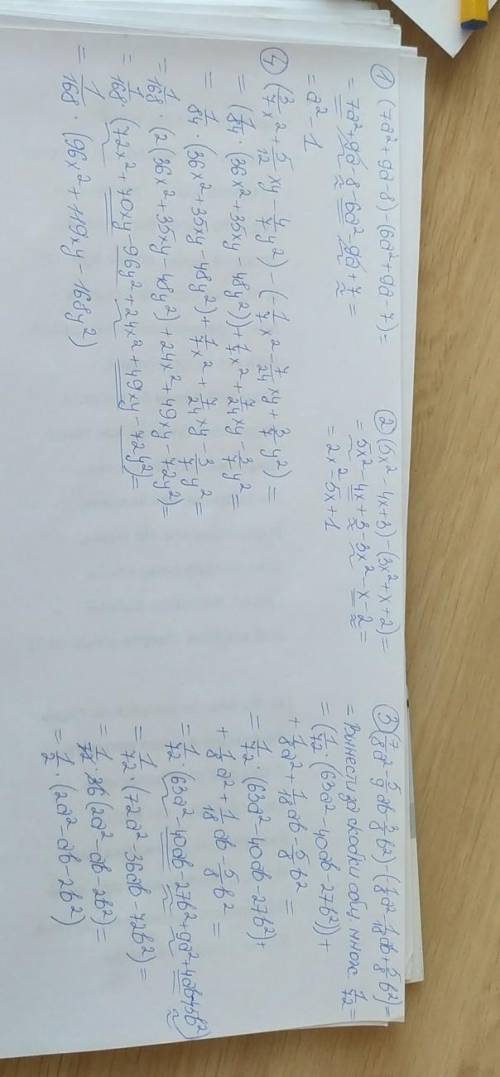 ① (7a²+9a-8)-(6a²+9a-7)=
=7a²+9a-8-6a²-9a+7=
=a²-1
② (5x²-4x+3)-(3x²+x+2)=
=5x²-4x+3-3x²-x-2=
=2x²-5x+1
③ (7/8a²-5/9ab-3/8b²)-(-1/8a²-1/18ab+5/8b²)=
=вынести за скобки общ. множ. 1/72=
=(1/72·(63a²-40ab-27b²))+
+1/8a²+1/18ab-5/8b²=
=1/72·(63a²-40ab-27b²)+
+1/8a²+1/18ab-5/8b²=
=1/72·(63a²-40ab-27b²+9a²+4ab-45b²)
=1/72·(72a²-36ab-72b²)=
=1/72·36(2a²-ab-2b²)=
=1/2·(2a²-ab-2b²)
④ (3/7x²+5/12xy-4/7y²)-(-1/7x²-7/24xy+3/7y²)=
=(1/84·(36x²+35xy-48y²))+1/7x²+7/24xy-3/7y²=
=1/84·(36x²+35xy-48y²)+1/7x²+7/24xy-3/7y²=
=1/168·(2(36x²+35xy-48y²)+24x²+49xy-72y²)=
=1/168·(72x²+70xy-96y²+24x²+49xy-72y²)=
=1/168·(96x²+119xy-168y²)